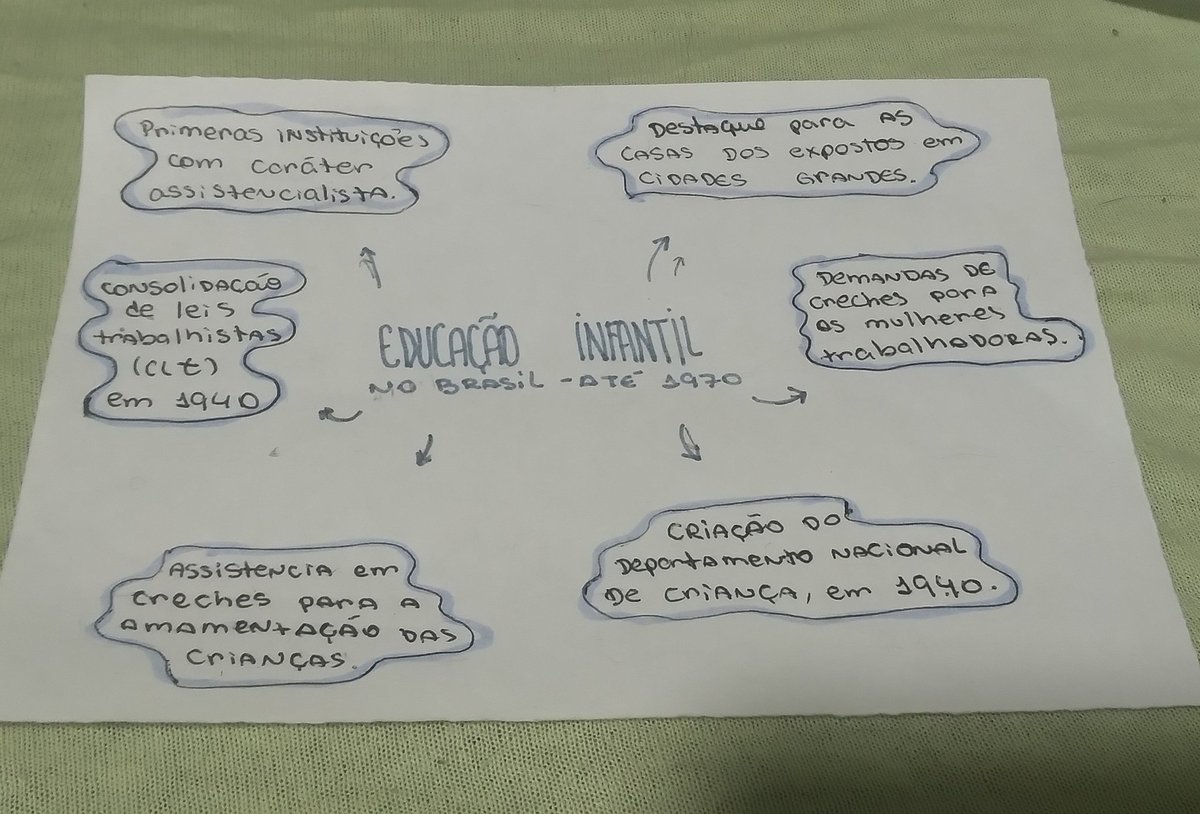 Primeiras instituições
com caráter
assistencialista.
Destaque para as
casas dos expostos em
cidades grandes.
Consolidação
de leis
trabalhistas
(CLT)
em 1940
EDUCAÇÃO INFANTIL
NO BRASIL - ATÉ 1970
Demandas de
creches para
as mulheres
trabalhadoras.
Assistencia em
creches para a
amamentação das
crianças.
Criação do
Departamento Nacional
de Criança, em 1940.